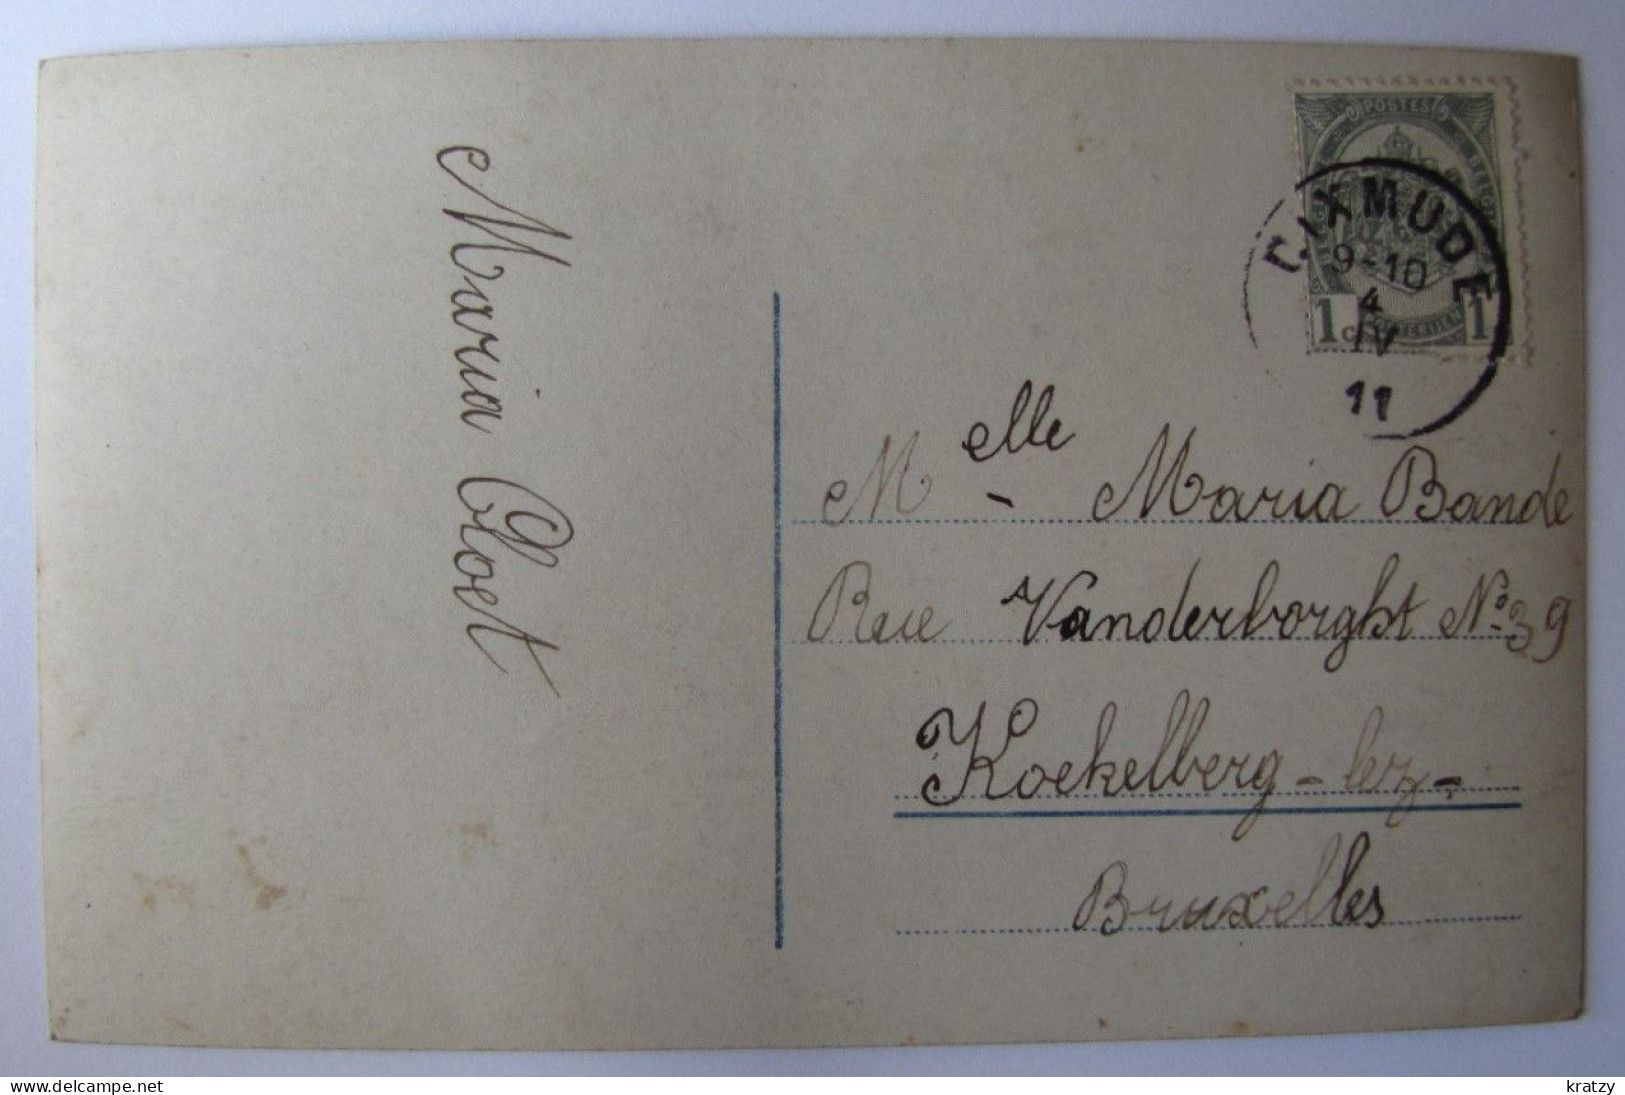 Maria Cloet
POSTES
DIXMUDE
9-10
4
IV
11
1 c 1
Melle - Maria Bande
Rue Vanderborght No 39
Koekelberg - lez -
Bruxelles
delcampe.net
kratzy